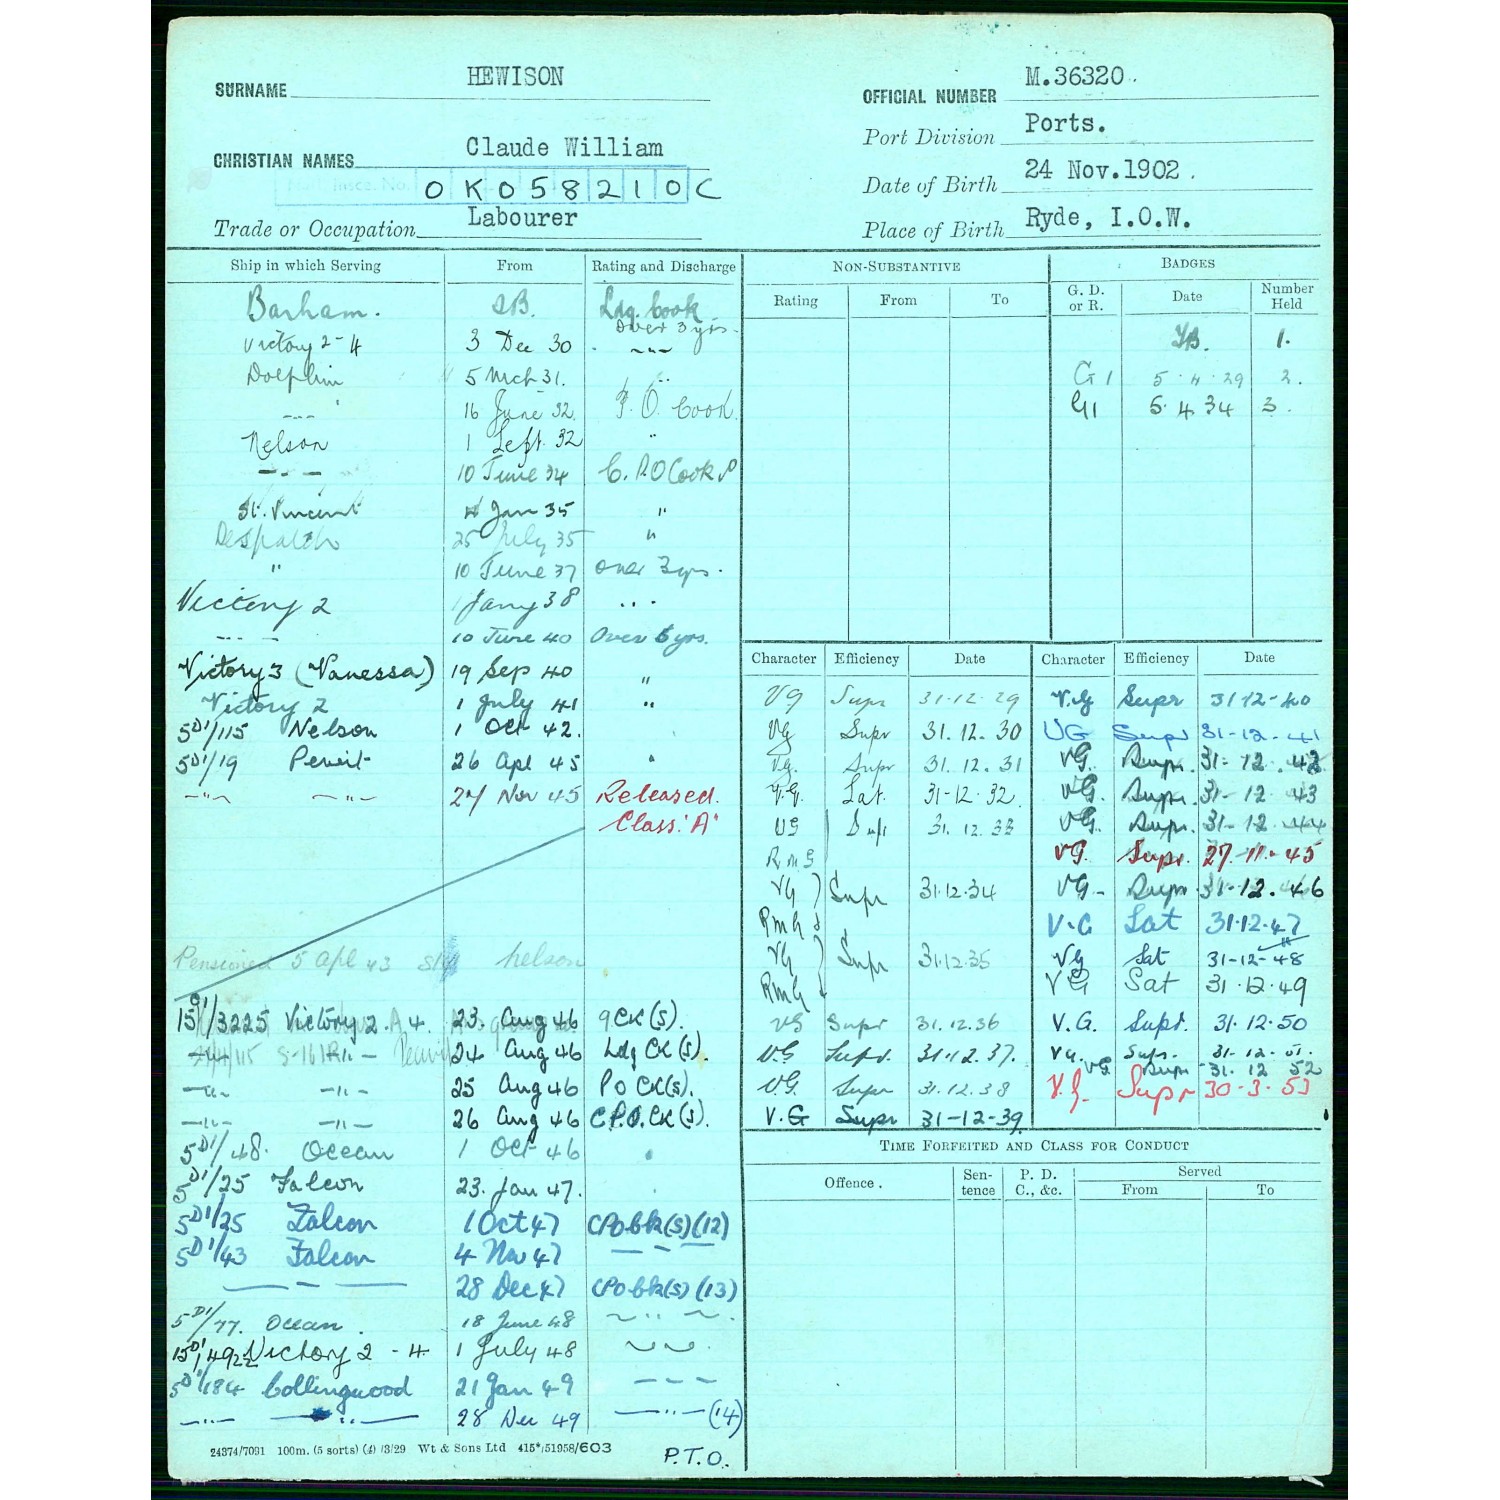 SURNAME HEWISON
OFFICIAL NUMBER M.36320.
CHRISTIAN NAMES Claude William
Port Division Ports.
Natl. Insce. No. OK058210C
Date of Birth 24 Nov.1902.
Trade or Occupation Labourer
Place of Birth Ryde, I.O.W.
Ship in which Serving From Rating and Discharge
Barham. Ldg. Cook
over 3 yrs.
Victory 2 - 4 3 Dec 30 " "
Dolphin 5 Mch 31. "
" 16 June 32. P.O. Cook
Nelson 1 Sept. 32 "
" 10 June 34 C.P.O Cook
St. Vincent Jan 35 "
Despatch 25 July 35 "
" 10 June 37 over 3 yrs.
Victory 2 1 Jany 38 " "
" 10 June 40 Over 6 yrs.
Victory 3 (Vanessa) 19 Sep 40 "
Victory 2 1 July 41 "
5D1/115 Nelson 1 Oct 42. "
5D1/19 Pewit 26 Apl 45 "
" " 27 Nov 45 Released.
Class 'A'
Pensioned 5 Apl 43 Nelson
15D1/3225 Victory 2. A 4. 23. Aug 46 CK(S).
24 Aug 46 Ldg CK(S).
" " 25 Aug 46 PO CK(S).
" " 26 Aug 46 C.P.O. CK(S).
5D1/48. Ocean 1 Oct 46 "
5D1/25 Falcon 23. Jan 47. "
5D1/25 Falcon 1 Oct 47 CPO Ck(S)(12)
5D1/43 Falcon 4 Nov 47 "
" 28 Dec 47 CPO Ck(S)(13)
5D1/77. Ocean. 18 June 48 "
15D1/4922 Victory 2 - 4 1 July 48 "
5D1/184 Collingwood 21 Jan 49 "
" " 28 Dec 49 " (14)
24374/7091 100m. (5 sorts) (4) /3/29 Wt & Sons Ltd 415*/51958/603
P.T.O.
NON-SUBSTANTIVE
Rating From To
BADGES
G. D. or R. Date Number Held
1.
G1 5.4.29 2.
G1 5.4.34 3.
Character Efficiency Date
VG Supr 31-12-29
VG Supr 31.12.30
VG. Supr 31.12.31
V.G. Sat. 31-12-32
VG Supr 31.12.33
RMG
VG Supr 31.12.34
RMG
VG Supr 31.12.35
RMG
VG Supr 31.12.36
V.G Supr. 31.12.37.
V.G. Supr 31.12.38
V.G Supr 31-12-39
Character Efficiency Date
V.G Supr 31-12-40
VG Supr 31-12-41
VG. Supr. 31-12.42
VG. Supr. 31-12 43
VG. Supr. 31-12-44
VG. Supr. 27.11.45
VG- Supr 31-12.46
V.G Sat 31.12.47
VG Sat 31-12-48
VG Sat 31.12.49
V.G. Supr. 31.12.50
VG. Supr. 31-12-51.
VG Supr 31.12 52
V.G. Supr 30.3.53
TIME FORFEITED AND CLASS FOR CONDUCT
Offence. Sentence P. D. C., &c. Served
From To